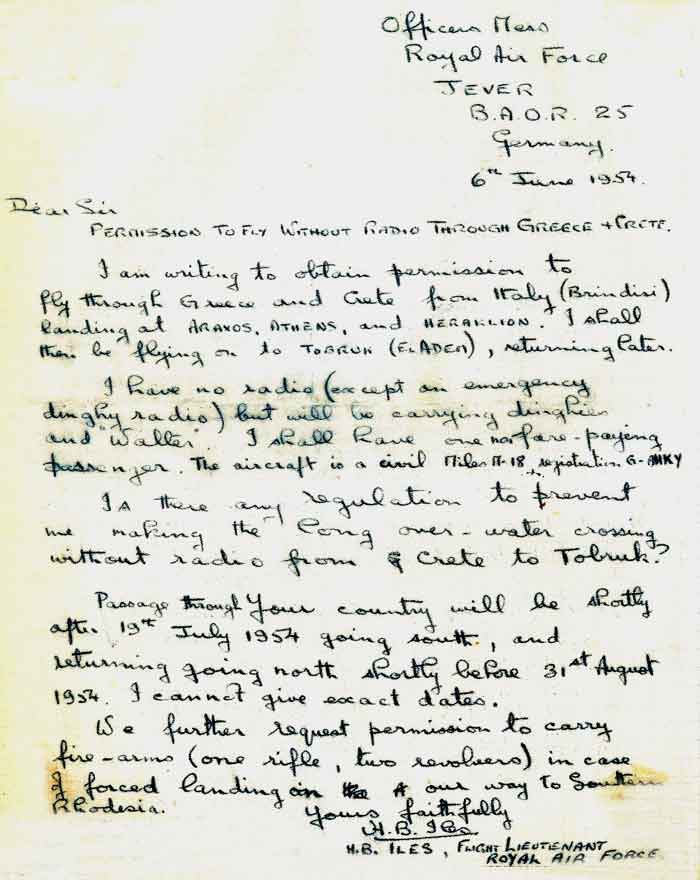 Officers Mess
Royal Air Force
JEVER
B.A.O.R. 25
Germany.
6th June 1954.
Dear Sir
PERMISSION TO FLY WITHOUT RADIO THROUGH GREECE + CRETE.
I am writing to obtain permission to
fly through Greece and Crete from Italy (Brindisi)
landing at ARAXOS, ATHENS, and HERAKLION. I shall
then be flying on to TOBRUK (EL ADEM), returning later.
I have no radio (except an emergency
dinghy radio) but will be carrying dinghies
and "Walter". I shall have one nonfare-paying
passenger. The aircraft is a civil Miles M-18, registration G-AHKY
Is there any regulation to prevent
me making the long over-water crossing
without radio from Crete to Tobruk?
Passage through your country will be shortly
after 19th July 1954 going south, and
returning going north shortly before 31st August
1954. I cannot give exact dates.
We further request permission to carry
fire-arms (one rifle, two revolvers) in case
of forced landing on our way to Southern
Rhodesia.
Yours faithfully
H.B. Iles
H.B. ILES, FLIGHT LIEUTENANT
ROYAL AIR FORCE